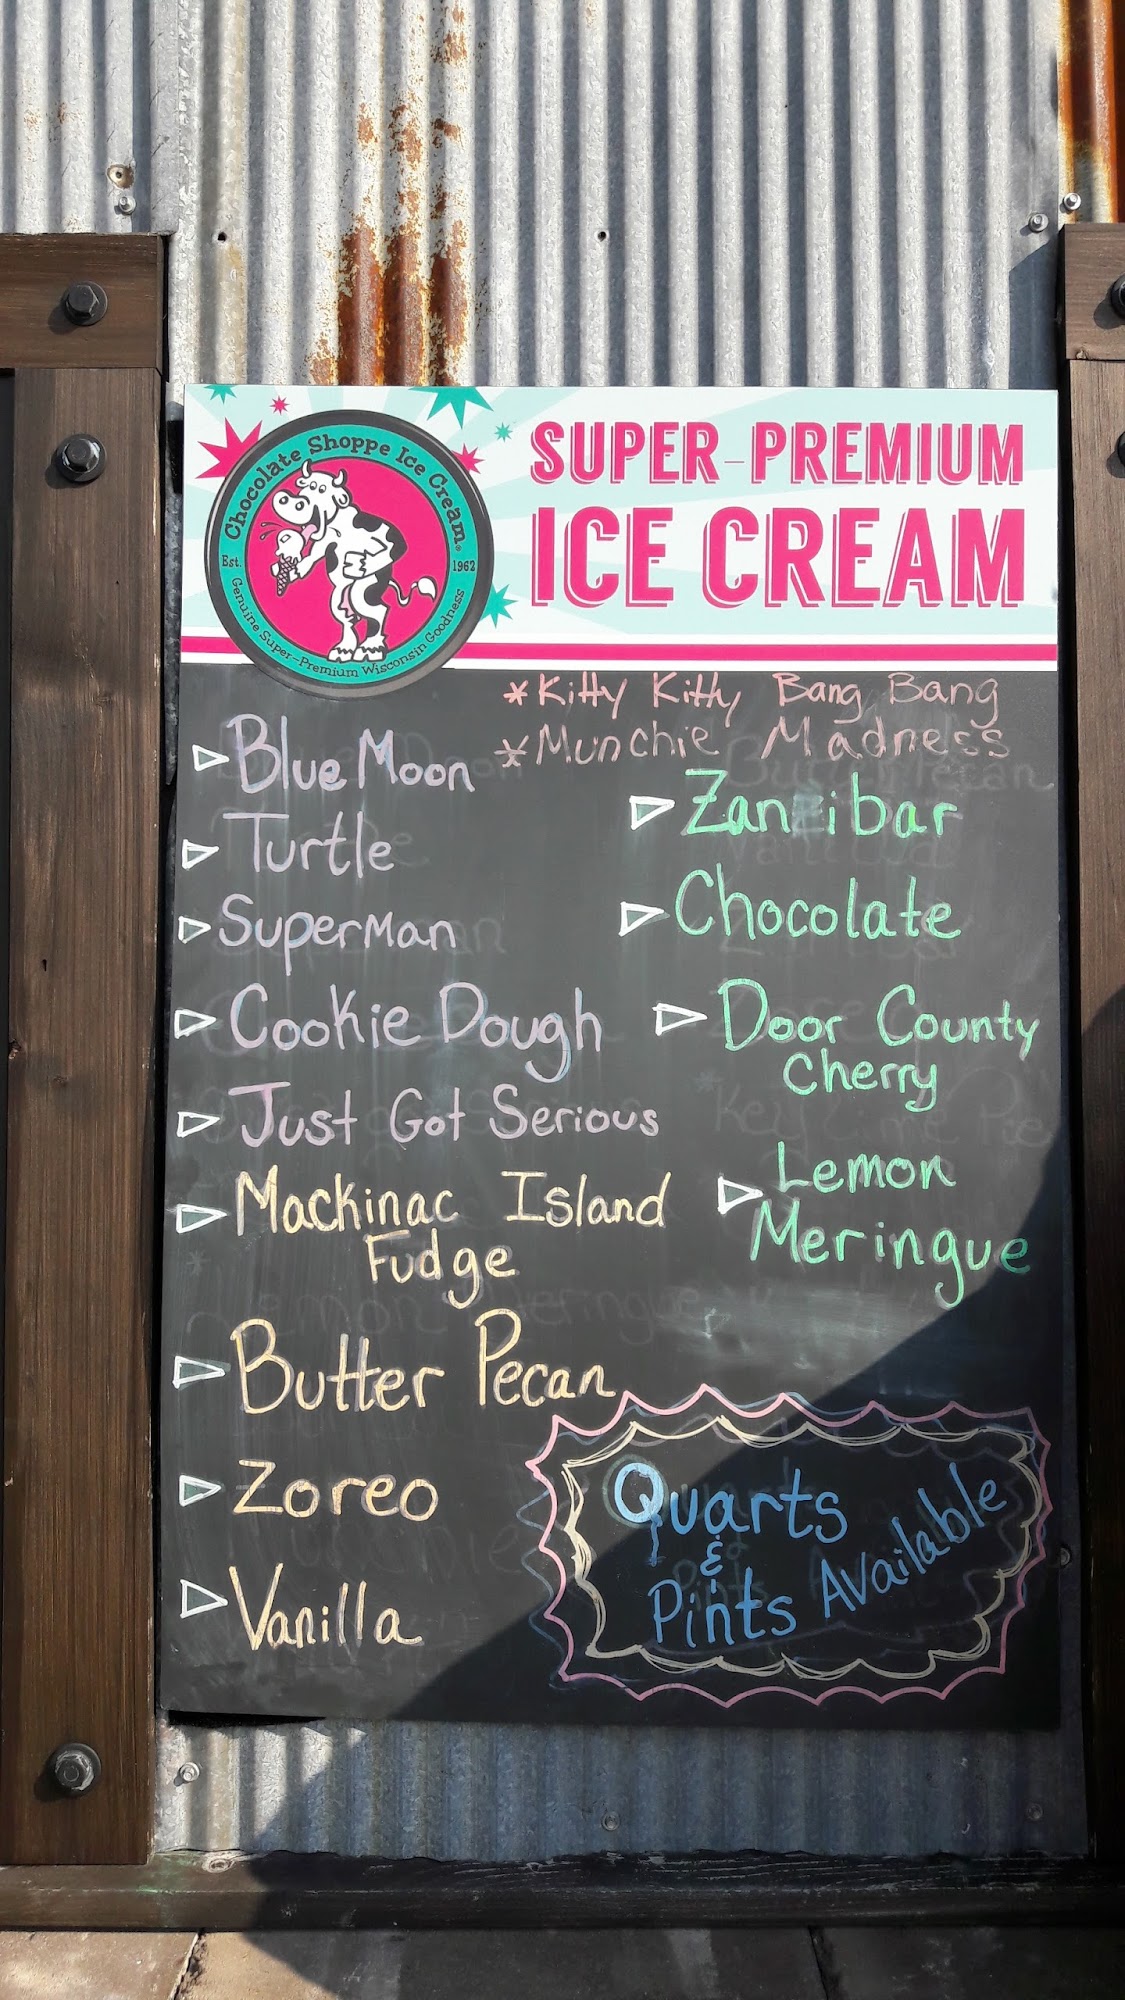 Chocolate Shoppe Ice Cream®
Est. 1962
Genuine Super-Premium Wisconsin Goodness
SUPER-PREMIUM
ICE CREAM
*Kitty Kitty Bang Bang
*Munchie Madness
Blue Moon
Turtle
Superman
Cookie Dough
Just Got Serious
Mackinac Island
Fudge
Butter Pecan
Zoreo
Vanilla
Zanzibar
Chocolate
Door County
Cherry
Lemon
Meringue
Quarts
&
Pints Available